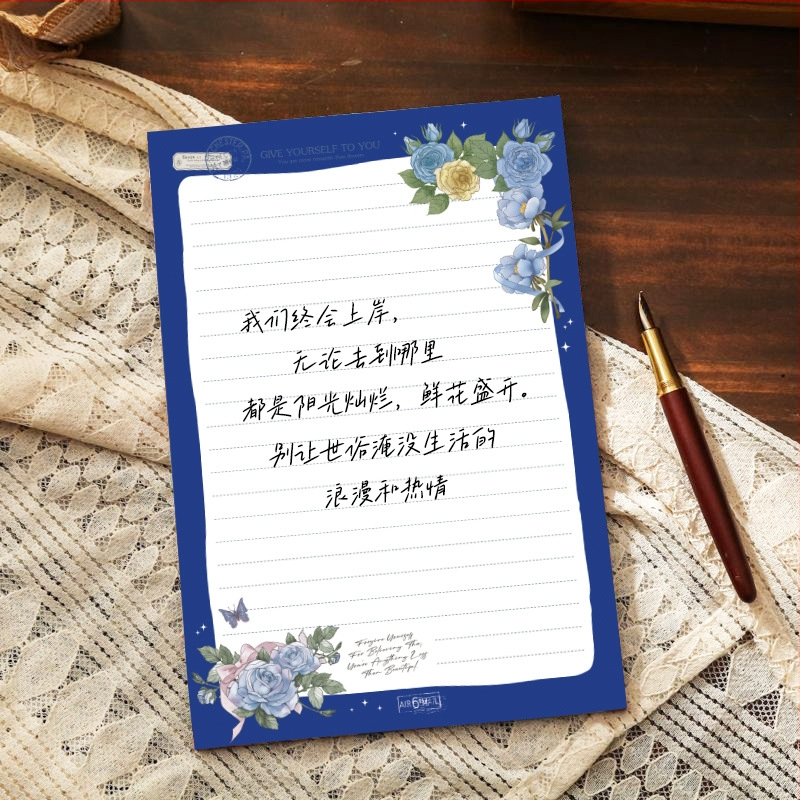 GIVE YOURSELF TO YOU
我们终会上岸，
无论去到哪里
都是阳光灿烂，鲜花盛开。
别让世俗淹没生活的
浪漫和热情